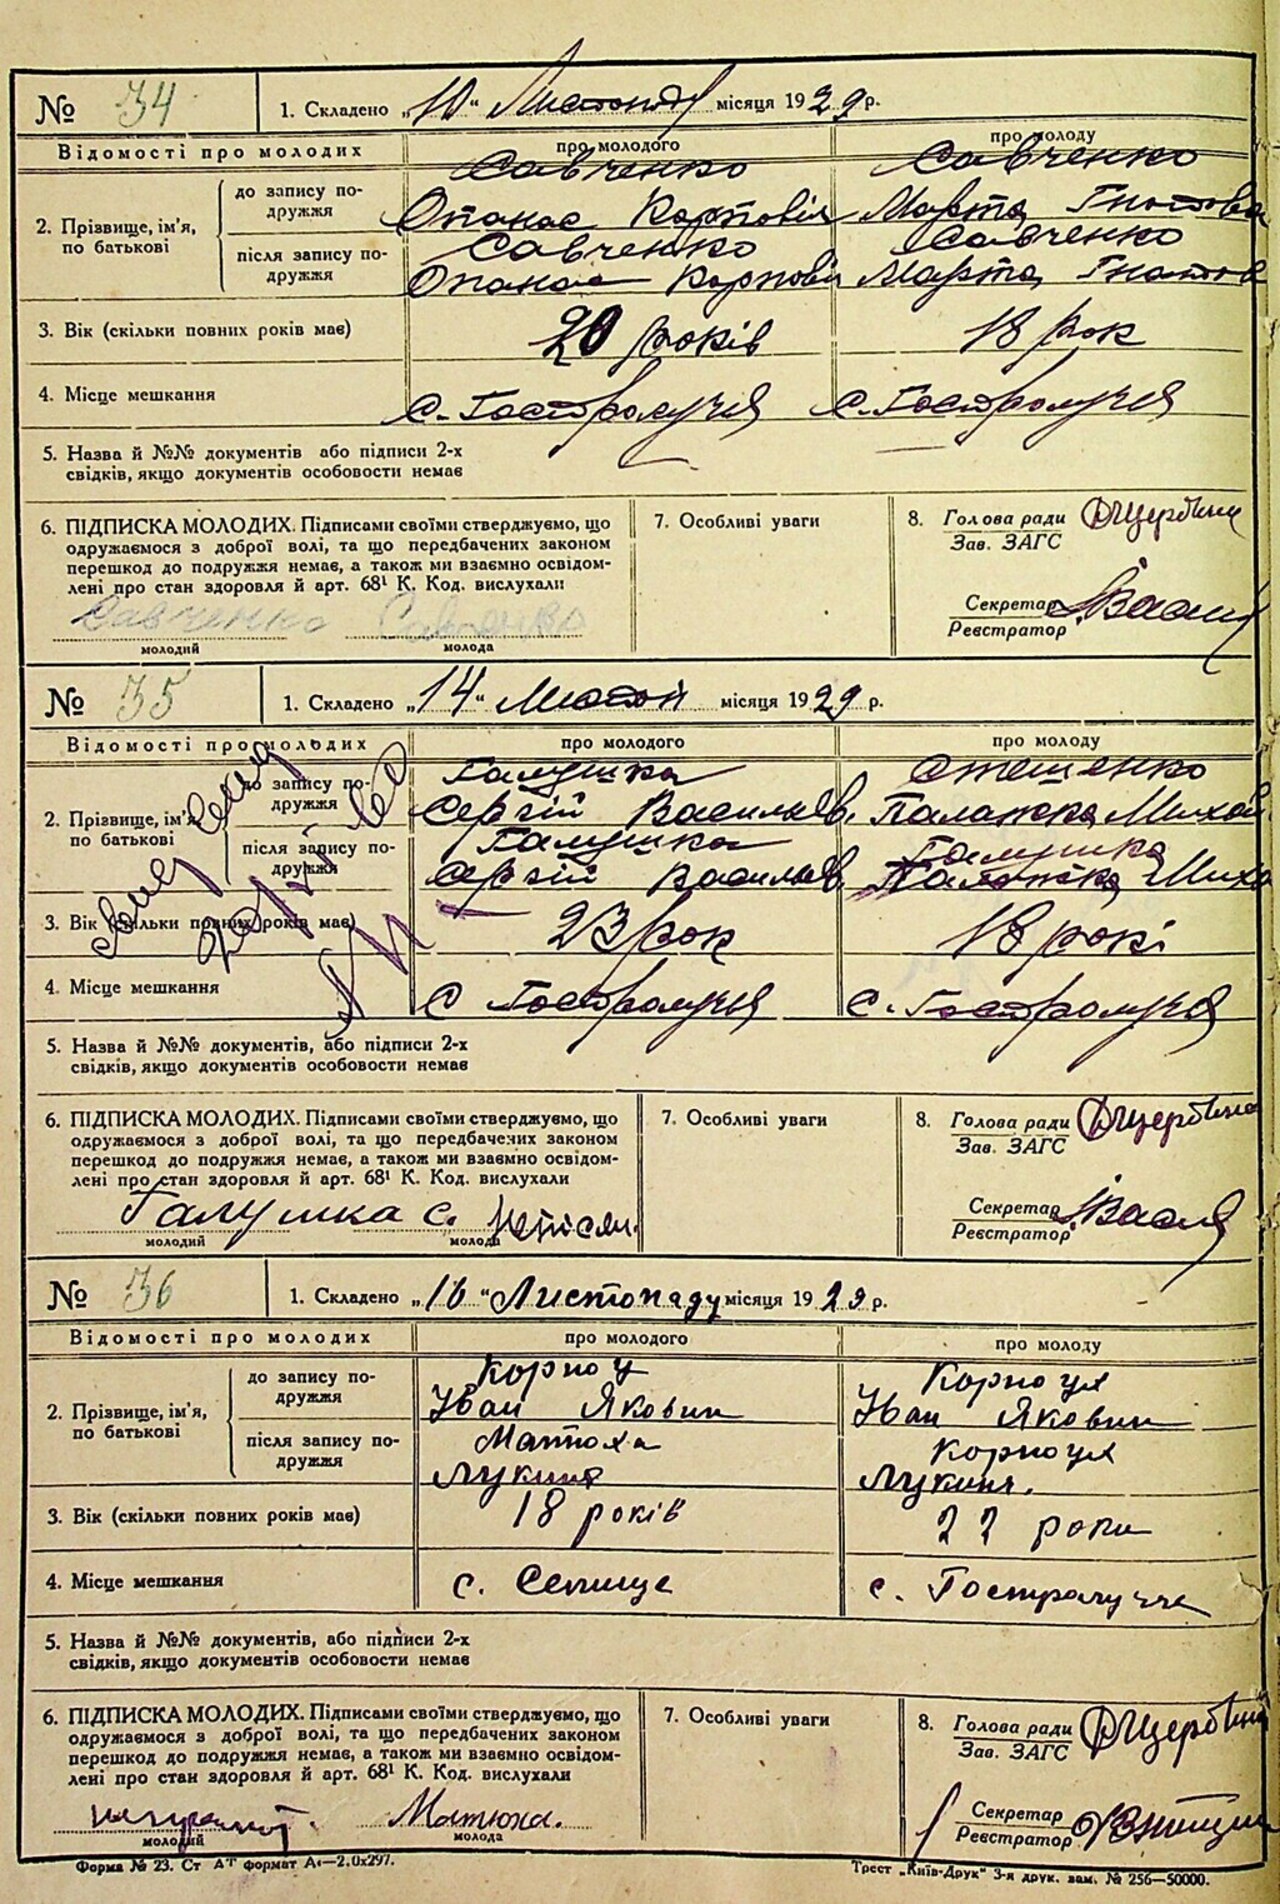 № 34 1. Складено „10“ Листопаду місяця 1929 р.
Відомості про молодих про молодого про молоду
2. Прізвище, ім'я, по батькові
до запису подружжя
Савченко Савченко
Опанас Карпович Марта Гнатова
після запису подружжя
Савченко Савченко
Опанас Карпович Марта Гнатов
3. Вік (скільки повних років має) 20 років 18 рок
4. Місце мешкання с. Гостролуччя с. Гостролуччя
5. Назва й №№ документів або підписи 2-х
свідків, якщо документів особовости немає
6. ПІДПИСКА МОЛОДИХ. Підписами своїми стверджуємо, що
одружаємося з доброї волі, та що передбачених законом
перешкод до подружжя немає, а також ми взаємно освідом-
лені про стан здоровля й арт. 68¹ К. Код. вислухали
Савченко Савченко
молодий молода
7. Особливі уваги
8. Голова ради Щербина
Зав. ЗАГС
Секретар
Реєстратор
№ 35 1. Складено „14“ Листоп місяця 1929 р.
Відомості про молодих про молодого про молоду
2. Прізвище, ім'я, по батькові
до запису подружжя
Галушка Стешенко
Сергій Васильєв. Палажка Михай
після запису подружжя
Галушка Галушка
Сергій Васильєв. Палажка Миха
3. Вік (скільки повних років має) 23 рок 18 рокі
4. Місце мешкання с Гостролуччя с. Гостролуччя
5. Назва й №№ документів, або підписи 2-х
свідків, якщо документів особовости немає
6. ПІДПИСКА МОЛОДИХ. Підписами своїми стверджуємо, що
одружаємося з доброї волі, та що передбачених законом
перешкод до подружжя немає, а також ми взаємно освідом-
лені про стан здоровля й арт. 68¹ К. Код. вислухали
Галушка С.
молодий молода
7. Особливі уваги
8. Голова ради Щербина
Зав. ЗАГС
Секретар
Реєстратор
№ 36 1. Складено „16“ Листопаду місяця 1929 р.
Відомості про молодих про молодого про молоду
2. Прізвище, ім'я, по батькові
до запису подружжя
Іван Якович Іван Якович
після запису подружжя
Матюха
3. Вік (скільки повних років має) 18 років 22 роки
4. Місце мешкання с. Селище с. Гостралучче
5. Назва й №№ документів, або підписи 2-х
свідків, якщо документів особовости немає
6. ПІДПИСКА МОЛОДИХ. Підписами своїми стверджуємо, що
одружаємося з доброї волі, та що передбачених законом
перешкод до подружжя немає, а також ми взаємно освідом-
лені про стан здоровля й арт. 68¹ К. Код. вислухали
Матюха.
молодий молода
7. Особливі уваги
8. Голова ради Щербина
Зав. ЗАГС
Секретар
Реєстратор
Форма № 23. Ст АТ формат А₄—2.0x297. Трест „Київ-Друк“ 3-я друк. зам. № 256—50000.